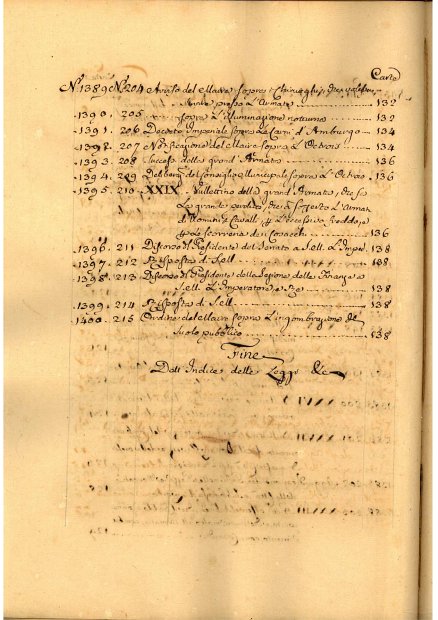 Carte
N.º 1389 N.º 204 Avviso del Maire sopra i Chirurghi,
presso l'Armata 132
1390. 205. sopra l'illuminazione notturna 132
1391. 206 Decreto Imperiale sopra le Carni d'Amburgo 134
1392. 207 Notificazione del Maire sopra l'Octrois 134
1393. 208 Successi della grand'Armata 136
1394. 209 Delibera del Consiglio Municipale sopra l'Octrois 136
1395. 210 XXIX. Bullettino della grand'Armata,
La grande perdita,
d'Uomini, e Cavalli, l'eccessivo freddo,
La scorreria dei Cosacchi 136
1396. 211 Discorso del Presidente del Senato a S. M. l'Imper. 138
1397. 212 Risposta di S. M. 138
1398. 213 Discorso del Presidente della
S. M. L'Imperatore e Re 138
1399. 214 Risposta di S. M. 138
1400. 215 Ordine del Maire sopra l'ingombrazione del
suolo pubblico 138
Fine
Dell'Indice delle Leggi &c